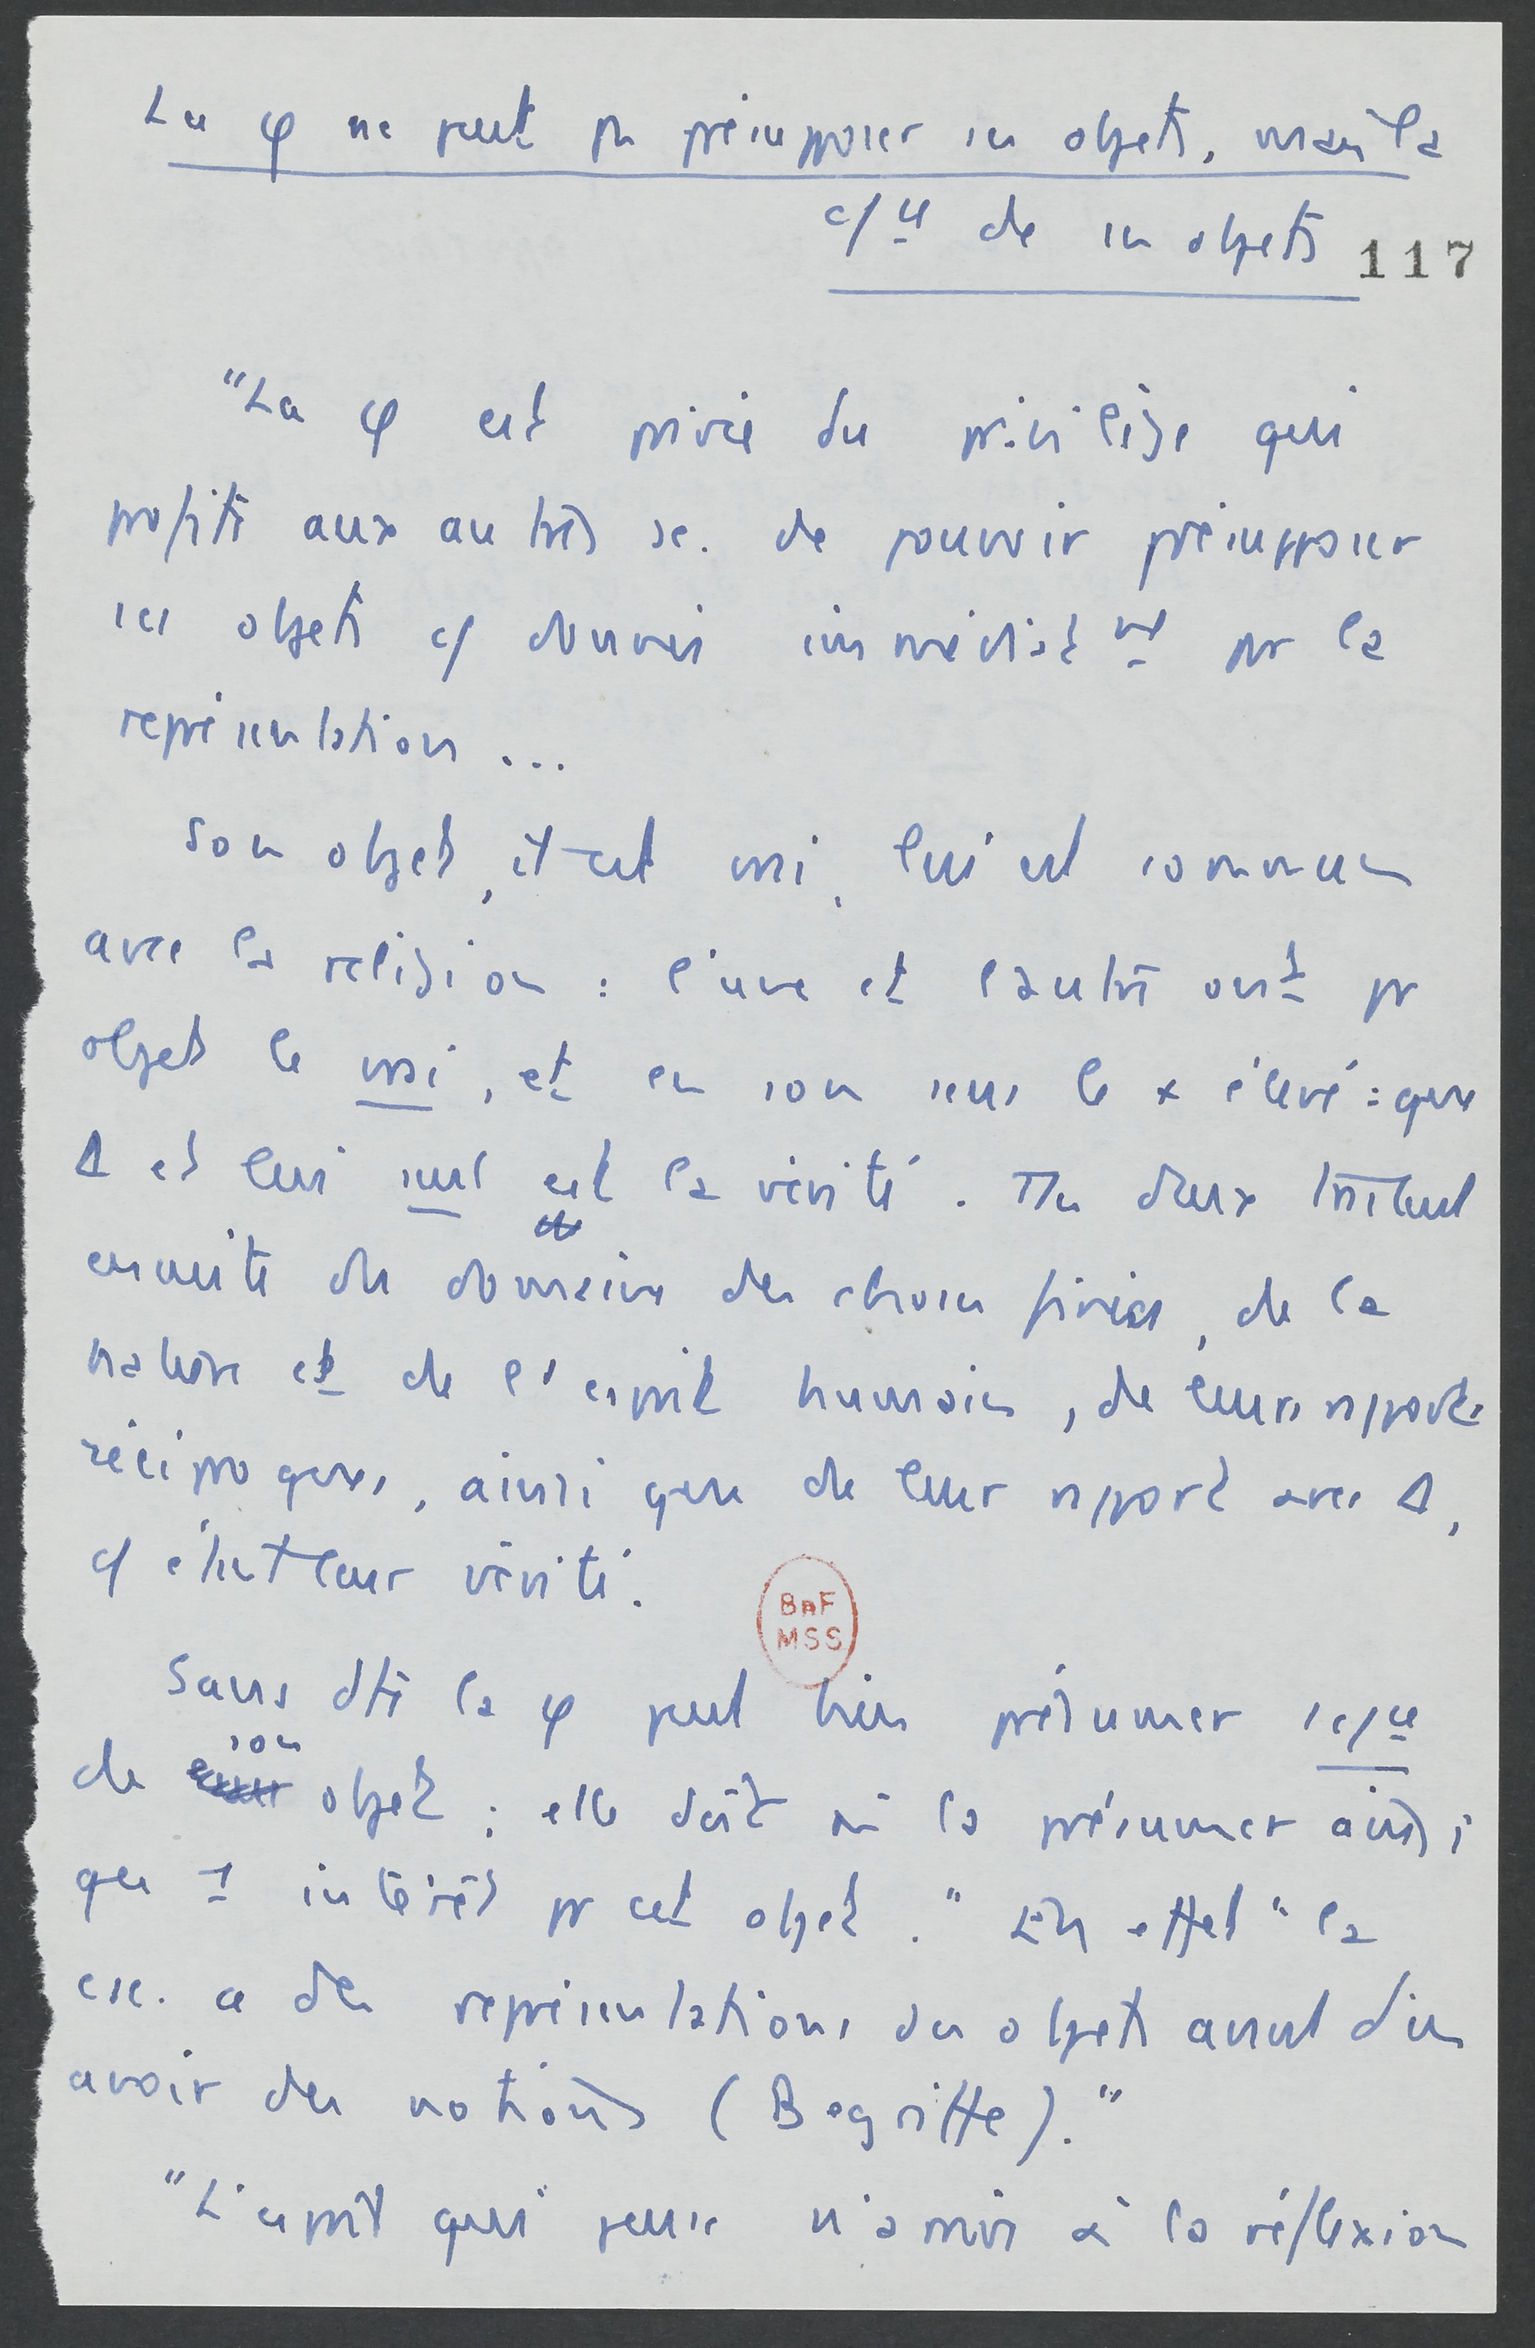 La φ ne peut pas présupposer ses objets, mais la
c/ce de ses objets 117
"La φ est privée du privilège qui
profite aux autres sc. de pouvoir présupposer
ses objets c/ donnés immédiatmt pr la
représentation...
Son objet, il est vrai, lui est commun
avec la religion : l'une et l'autre ont pr
objet le vrai, et en son sens le + élevé : que
Δ et lui seul est la vérité. Ttes deux traitent
ensuite du domaine des choses finies, de la
nature et de l'esprit humain, de leurs rapports
réciproques, ainsi que de leur rapport avec Δ,
c/ étant leur vérité.
BnF
MSS
Sans dte la φ peut bien présumer
de son objet ; elle doit la présumer ainsi
que 1 intérêt pr cet objet. " En effet " la
csc. a des représentations des objets avant d'en
avoir des notions (Begriffe)."
"L'esprit qui pense n'arrive à la réflexion